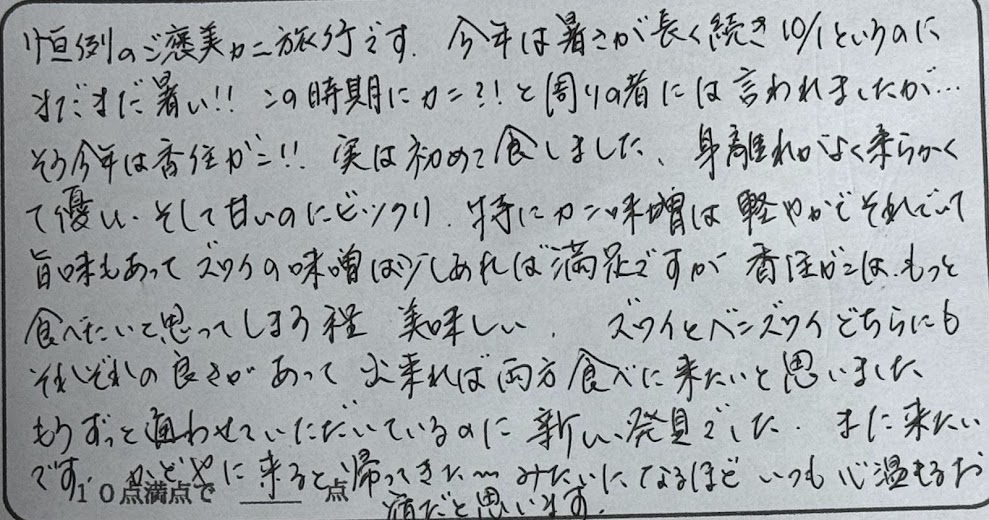 恒例のご褒美カニ旅行です. 今年は暑さが長く続き10/1というのに
まだまだ暑い!! この時期にカニ?!と周りの者には言われましたが…
そう今年は香住ガニ!! 実は初めて食しました、身離れがよく柔らかく
て優しい.そして甘いのにビックリ. 特にカニ味噌は軽やかでそれでいて
旨味もあってズワイの味噌は少しあれば満足ですが香住ガニは、もっと
食べたいと思ってしまう程 美味しい. ズワイとベニズワイどちらにも
それぞれの良さがあって出来れば両方食べに来たいと思いました
もうずっと通わせていただいているのに新しい発見でした. また来たい
です. かどやに来ると帰ってきた〜みたいになるほどいつも心温まるお
宿だと思います.
10点満点で 点